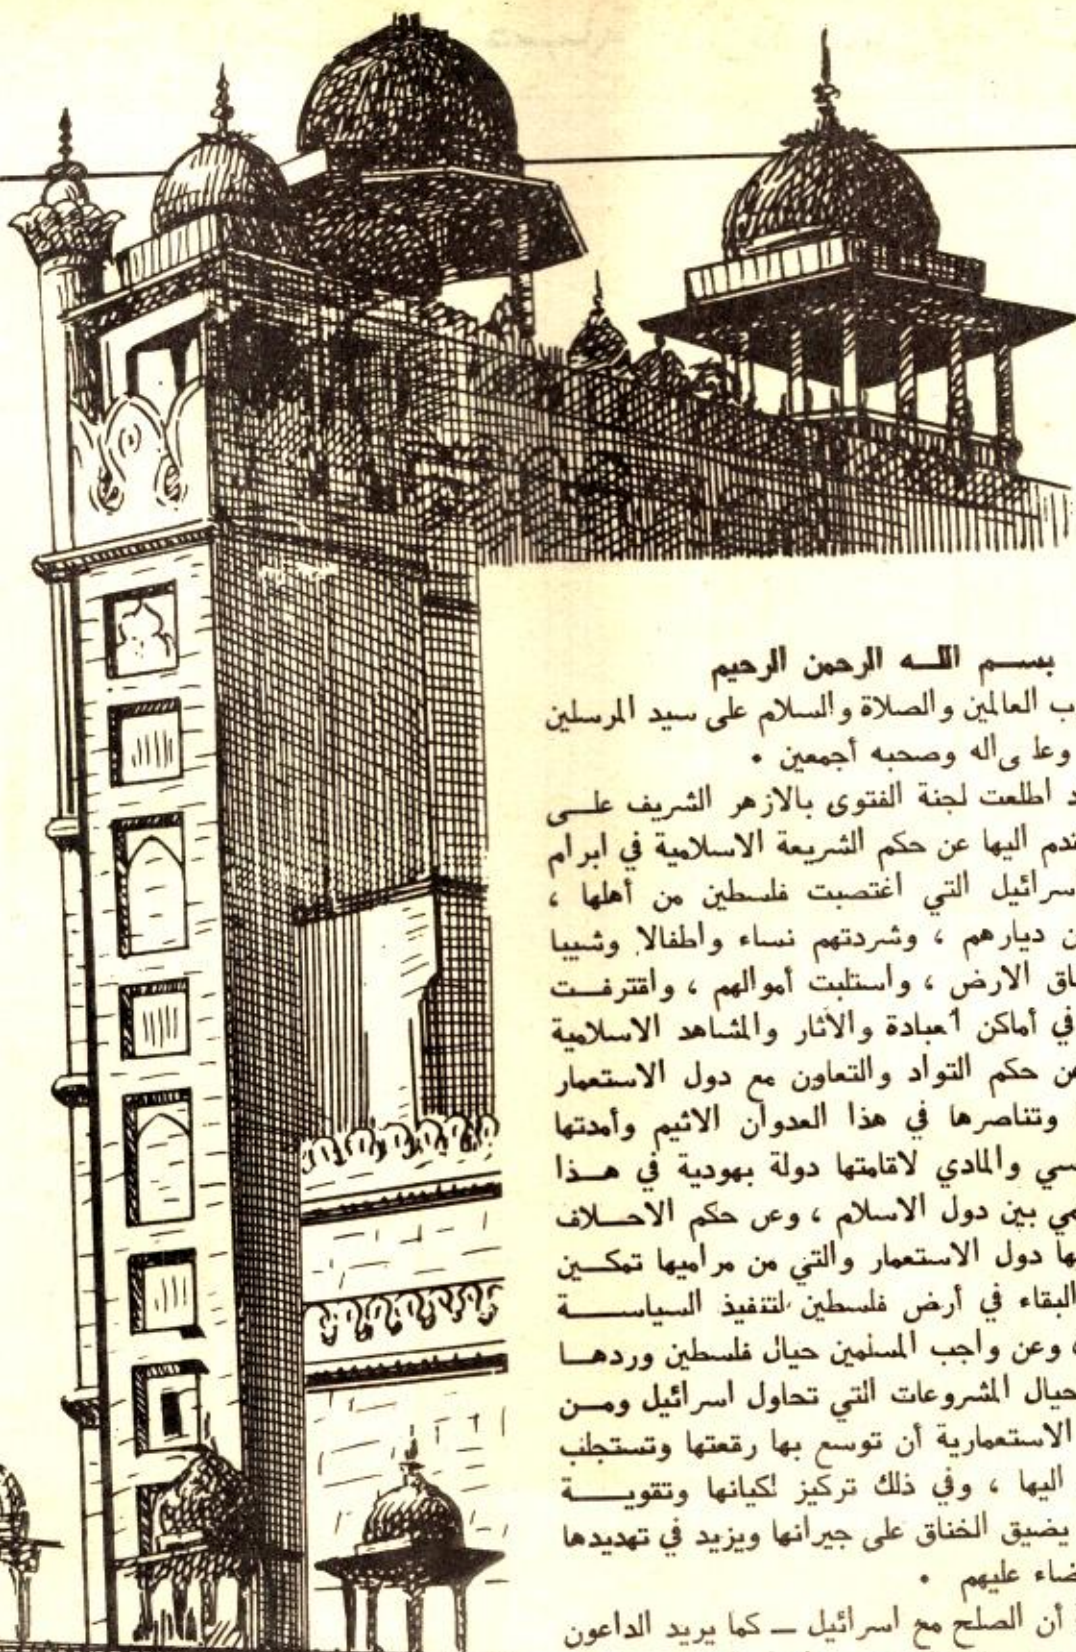 بسم الله الرحمن الرحيم
ب العالمين والصلاة والسلام على سيد المرسلين
وعلى اله وصحبه أجمعين .
د اطلعت لجنة الفتوى بالازهر الشريف على
قدم اليها عن حكم الشريعة الاسلامية في ابرام
اسرائيل التي اغتصبت فلسطين من أهلها ،
ن ديارهم ، وشردتهم نساء واطفالا وشيبا
اق الارض ، واستلبت أموالهم ، واقترفت
في أماكن العبادة والآثار والمشاهد الاسلامية
عن حكم التواد والتعاون مع دول الاستعمار
وتناصرها في هذا العدوان الاثيم وأمدتها
سي والمادي لاقامتها دولة يهودية في هذا
مي بين دول الاسلام ، وعن حكم الاحلاف
ها دول الاستعمار والتي من مراميها تمكين
البقاء في أرض فلسطين لتنفيذ السياسة
، وعن واجب المسلمين حيال فلسطين وردها
حيال المشروعات التي تحاول اسرائيل ومن
الاستعمارية أن توسع بها رقعتها وتستجلب
اليها ، وفي ذلك تركيز لكيانها وتقوية
يضيق الخناق على جيرانها ويزيد في تهديدها
ضاء عليهم .
أن الصلح مع اسرائيل — كما يريد الداعون